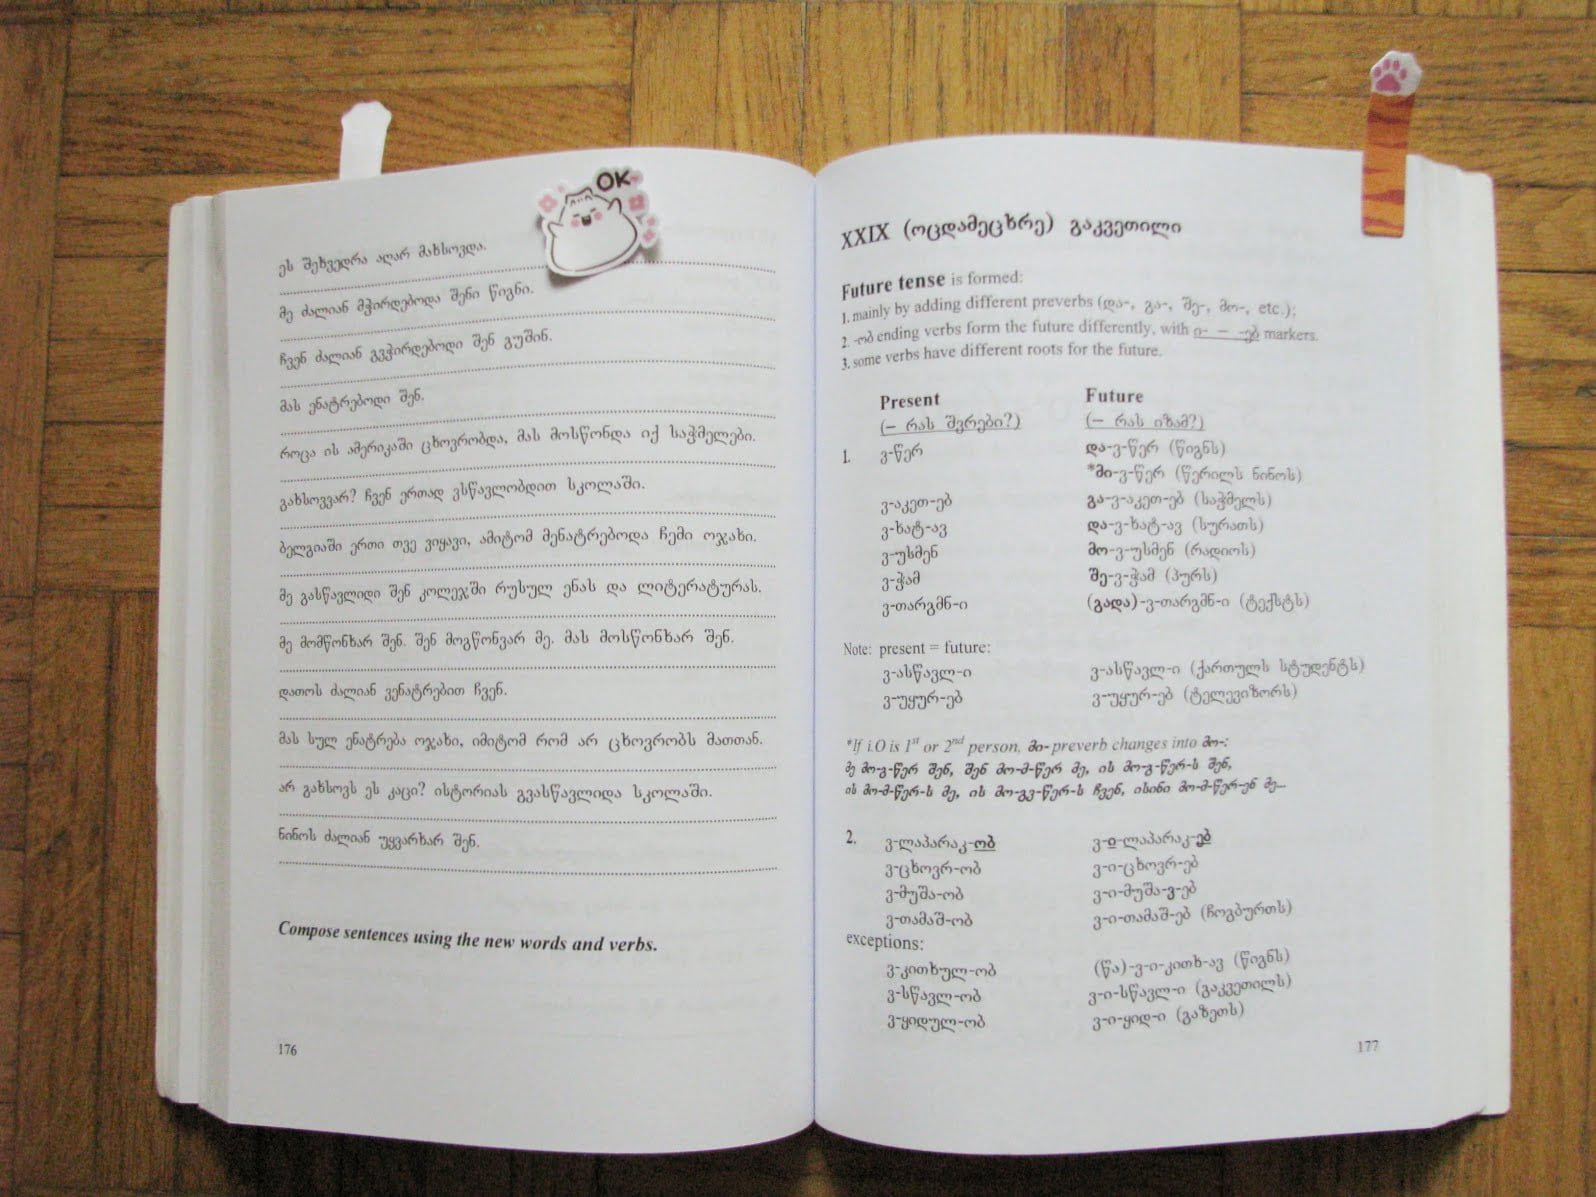 OK
ეს შეხვედრა აღარ მახსოვდა.
მე ძალიან მჭირდებოდა შენი წიგნი.
ჩვენ ძალიან გვჭირდებოდი შენ გუშინ.
მას ენატრებოდი შენ.
როცა ის ამერიკაში ცხოვრობდა, მას მოსწონდა იქ საჭმელები.
გახსოვვარ? ჩვენ ერთად ვსწავლობდით სკოლაში.
ბელგიაში ერთი თვე ვიყავი, ამიტომ მენატრებოდა ჩემი ოჯახი.
მე გასწავლიდი შენ კოლეჯში რუსულ ენას და ლიტერატურას.
მე მომწონხარ შენ. შენ მოგწონვარ მე. მას მოსწონხარ შენ.
დათოს ძალიან ვენატრებით ჩვენ.
მას სულ ენატრება ოჯახი, იმიტომ რომ არ ცხოვრობს მათთან.
არ გახსოვს ეს კაცი? ისტორიას გვასწავლიდა სკოლაში.
ნინოს ძალიან უყვარხარ შენ.
Compose sentences using the new words and verbs.
176
XXIX (ოცდამეცხრე) გაკვეთილი
Future tense is formed:
1. mainly by adding different preverbs (და-, გა-, შე-, მო-, etc.);
2. -ობ ending verbs form the future differently, with ი- – -ებ markers.
3. some verbs have different roots for the future.
Present Future
(– რას შვრები?) (– რას იზამ?)
1. ვ-წერ და-ვ-წერ (წიგნს)
*მი-ვ-წერ (წერილს ნინოს)
ვ-აკეთ-ებ გა-ვ-აკეთ-ებ (საჭმელს)
ვ-ხატ-ავ და-ვ-ხატ-ავ (სურათს)
ვ-უსმენ მო-ვ-უსმენ (რადიოს)
ვ-ჭამ შე-ვ-ჭამ (პურს)
ვ-თარგმნ-ი (გადა)-ვ-თარგმნ-ი (ტექსტს)
Note: present = future:
ვ-ასწავლ-ი ვ-ასწავლ-ი (ქართულს სტუდენტს)
ვ-უყურ-ებ ვ-უყურ-ებ (ტელევიზორს)
*If i.O is 1st or 2nd person, მი- preverb changes into მო-:
მე მო-გ-წერ შენ, შენ მო-მ-წერ მე, ის მო-გ-წერ-ს შენ,
ის მო-მ-წერ-ს მე, ის მო-გვ-წერ-ს ჩვენ, ისინი მო-მ-წერ-ენ მე...
2. ვ-ლაპარაკ-ობ ვ-ი-ლაპარაკ-ებ
ვ-ცხოვრ-ობ ვ-ი-ცხოვრ-ებ
ვ-მუშა-ობ ვ-ი-მუშა-ვ-ებ
ვ-თამაშ-ობ ვ-ი-თამაშ-ებ (ჩოგბურთს)
exceptions:
ვ-კითხულ-ობ (წა)-ვ-ი-კითხ-ავ (წიგნს)
ვ-სწავლ-ობ ვ-ი-სწავლ-ი (გაკვეთილს)
ვ-ყიდულ-ობ ვ-ი-ყიდ-ი (გაზეთს)
177